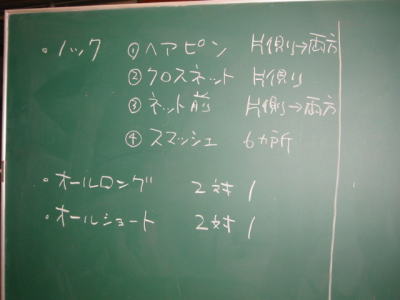 ・ノック ①ヘアピン 片側→両方
②クロスネット 片側
③ネット前 片側→両方
④スマッシュ 6カ所
・オールロング 2対1
・オールショート 2対1